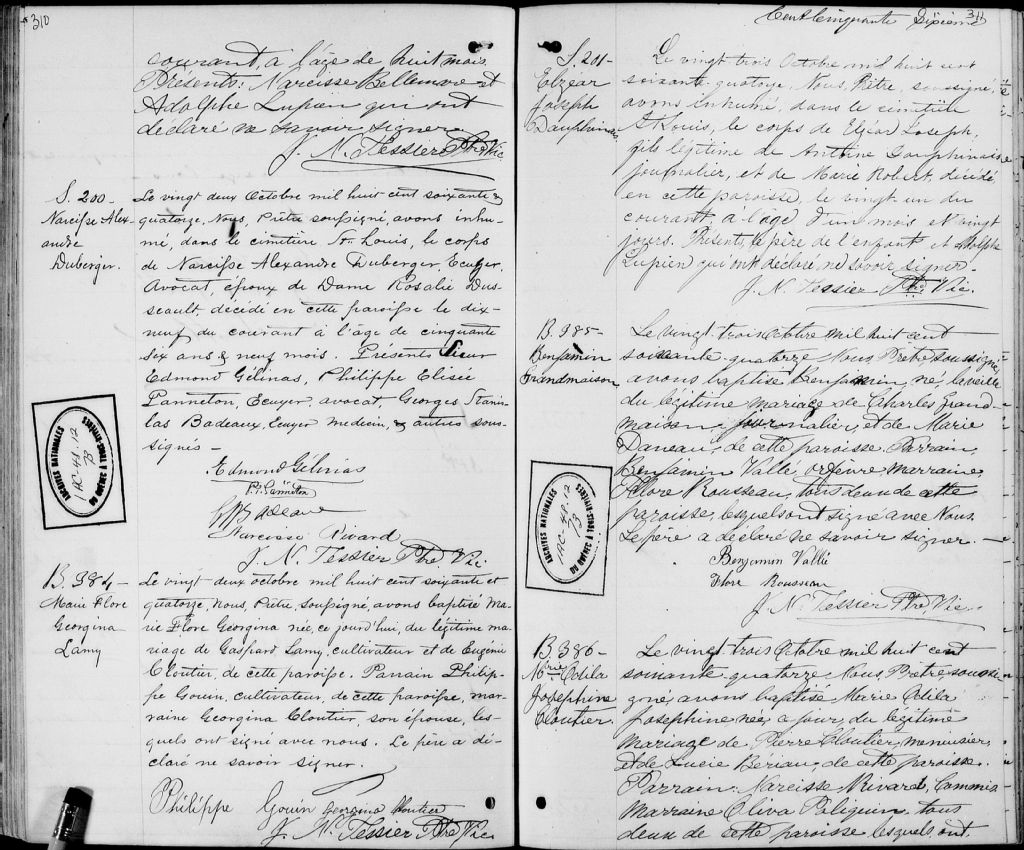 310
courant, à l'âge de huit mois.
Présents: Narcisse Bellemare et
Adolphe Lupien qui ont
déclaré ne savoir signer
J. N. Tessier Ptre Vic
S. 200
Narcisse Alex-
andre
Duberger.
Le vingt deux Octobre mil huit cent soixante &
quatorze, Nous, Prêtre soussigné, avons inhu-
mé, dans le cimetière St. Louis, le corps
de Narcisse Alexandre Duberger, Ecuyer,
Avocat, époux de Dame Rosalie Dus-
seault, décédé en cette paroisse le dix-
neuf du courant à l'âge de cinquante
six ans & neuf mois. Présents Sieur
Edmond Gélinas, Philippe Elisée
Panneton, Ecuyer, avocat, Georges Stanis-
las Badeaux, Ecuyer medecin, & autres sous-
signés -
Edmond Gélinas
P. E. Panneton
G S Badeaux
Narcisse Rivard
J. N. Tessier Ptre Vic.
ARCHIVES NATIONALES
DU QUÉBEC À TROIS-RIVIÈRES
1AC-48.12
73
B. 384 -
Marie Flore
Georgina
Lamy
Le vingt-deux octobre mil huit cent soixante et
quatorze, nous, Prêtre, soussigné avons baptisé Ma-
rie Flore Georgina née, ce jourd'hui, du légitime ma-
riage de Gaspard Lamy, cultivateur et de Eugénie
Cloutier, de cette paroisse. Parrain Philip-
pe Gouin, cultivateur, de cette paroisse, mar-
raine Georgina Cloutier, son épouse, les-
quels ont signé avec nous. Le père a dé-
claré ne savoir signer.
Philippe Gouin Georgina Cloutier
J. N. Tessier Ptre Vic
Cent Cinquante Sixième
311
S. 201-
Elzéar
Joseph
Dauphinais
Le vingt trois Octobre mil huit cent
soixante quatorze. Nous, Prêtre, soussigné,
avons inhumé, dans le cimetière
St Louis, le corps de Elzéar Joseph,
fils légitime de Antoine Dauphinais
journalier, et de Marie Robert, décédé
en cette paroisse, le vingt un du
courant, à l'âge d'un mois et vingt
jours. Présents, le père de l'enfant et Adolphe
Lupien qui ont déclaré ne savoir signer.
J. N. Tessier Ptre Vic.
B. 385-
Benjamin
Grandmaison
Le vingt-trois Octobre mil huit cent
soixante quatorze Nous Prêtre, soussigné,
avons baptisé Benjamin, né, la veille
du légitime mariage de Charles Grand-
maison, journalier, et de Marie
Daneau, de cette paroisse, Parrain,
Benjamin Vallé, orfèvre marraine
Flore Rousseau, tous deux de cette
paroisse, lesquels ont signé avec Nous.
Le père a déclaré ne savoir signer. -
Benjamin Vallé
Flore Rousseau
J. N. Tessier Ptre Vic.
ARCHIVES NATIONALES
DU QUÉBEC À TROIS-RIVIÈRES
1AC-48.12
73
B 386-
Mrie Odila
Josephine
Cloutier.
Le vingt-trois Octobre mil huit cent
soixante quatorze Nous, Prêtre, soussi-
gné, avons baptisé Marie Odila
Josephine, née, ce jour, du légitime
mariage de Pierre Cloutier, menuisier,
et de Lucie Bériau, de cette paroisse.
Parrain: Narcisse Rivard, Commis
Marraine Oliva Poliquin, tous
deux de cette paroisse lesquels, ont